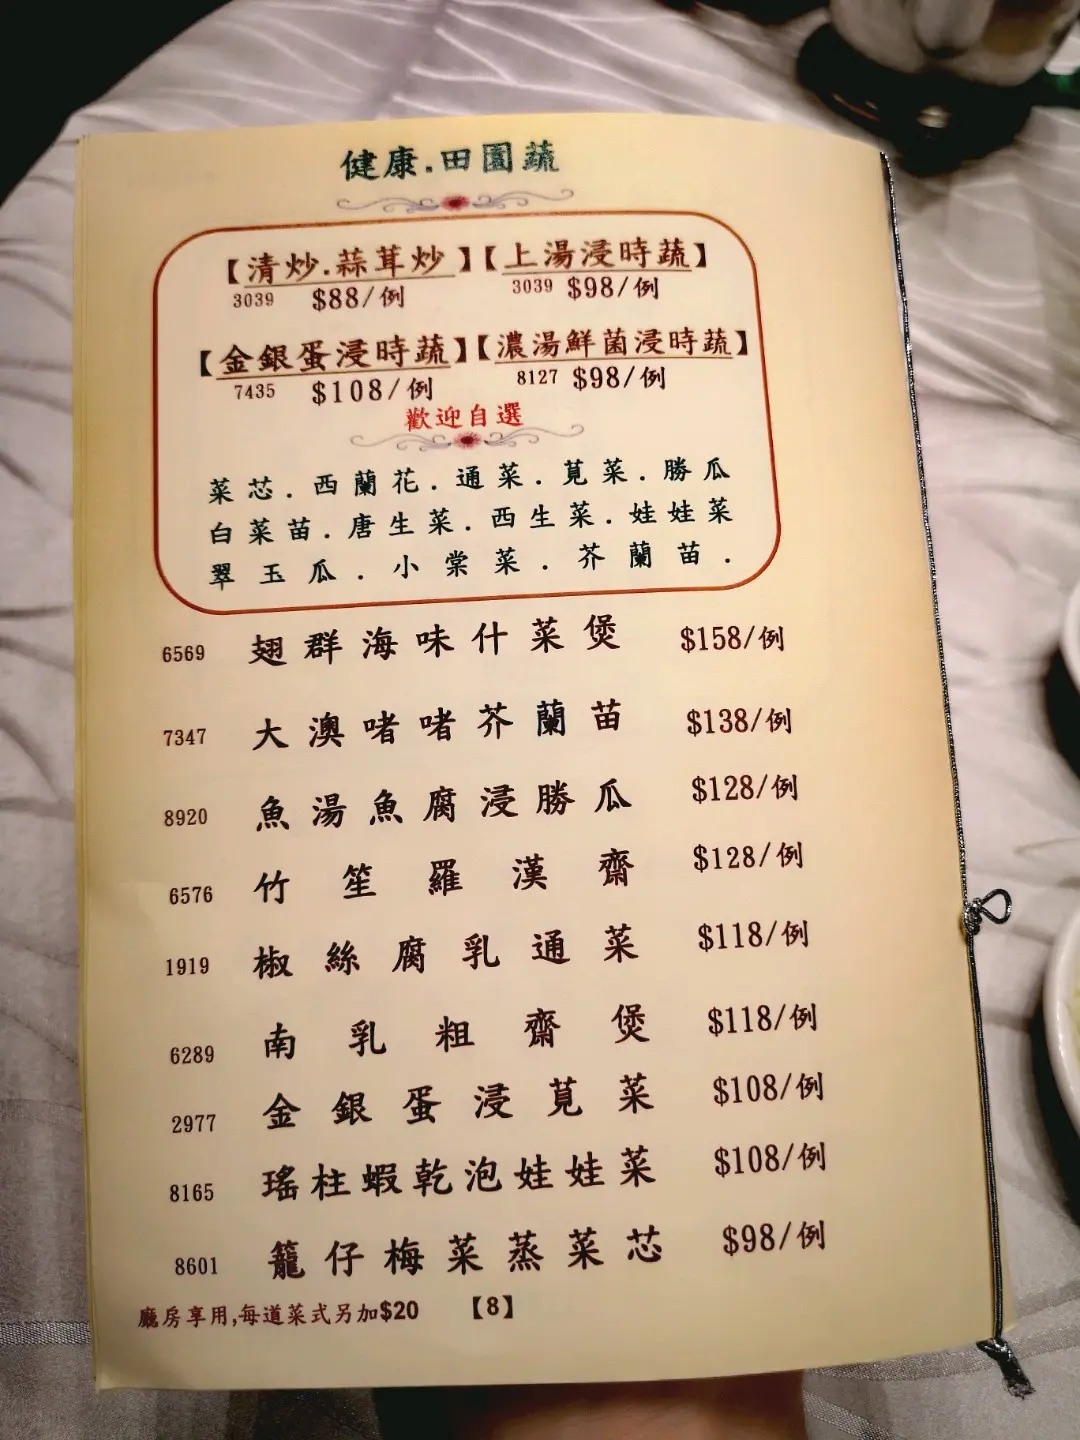 健康.田園蔬
【清炒.蒜茸炒】【上湯浸時蔬】
3039 $88/例 3039 $98/例
【金銀蛋浸時蔬】【濃湯鮮菌浸時蔬】
7435 $108/例 8127 $98/例
歡迎自選
菜芯.西蘭花.通菜.莧菜.勝瓜
白菜苗.唐生菜.西生菜.娃娃菜
翠玉瓜.小棠菜.芥蘭苗.
6569 翅群海味什菜煲 $158/例
7347 大澳啫啫芥蘭苗 $138/例
8920 魚湯魚腐浸勝瓜 $128/例
6576 竹笙羅漢齋 $128/例
1919 椒絲腐乳通菜 $118/例
6289 南乳粗齋煲 $118/例
2977 金銀蛋浸莧菜 $108/例
8165 瑤柱蝦乾泡娃娃菜 $108/例
8601 籠仔梅菜蒸菜芯 $98/例
廳房享用,每道菜式另加$20 【8】